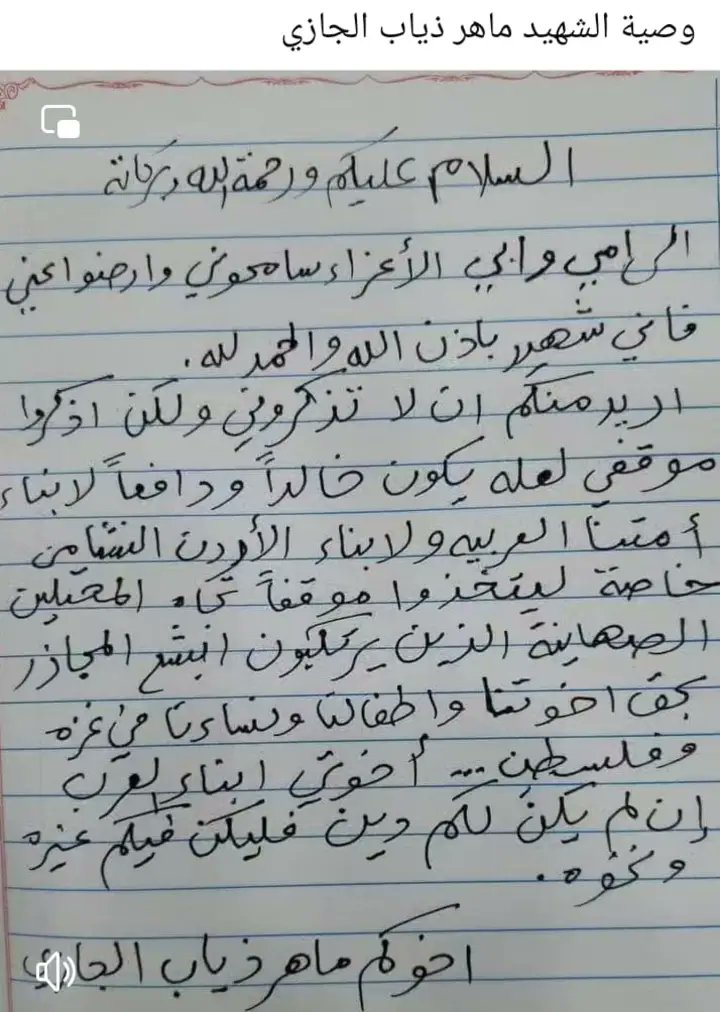 وصية الشهيد ماهر ذياب الجازي
السلام عليكم ورحمة الله وبركاتة
الى امي وابي الأعزاء سامحوني وارضوا عني
فاني شهيد باذن الله والحمد لله.
اريد منكم ان لا تذكروني ولكن اذكروا
موقفي لعله يكون خالداً ودافعاً لابناء
أمتنا العربيه ولابناء الأردن النشامى
خاصة ليتخذوا موقفاً تجاه المحتلين
الصهاينة الذين يرتكبون ابشع المجاذر
بحق اخوتنا واطفالنا ونساءنا في غزه
وفلسطين ... أخوتي ابناء العرب
إن لم يكن لكم دين فليكن فيكم غيره
ونخوه.
اخوكم ماهر ذياب الجازي